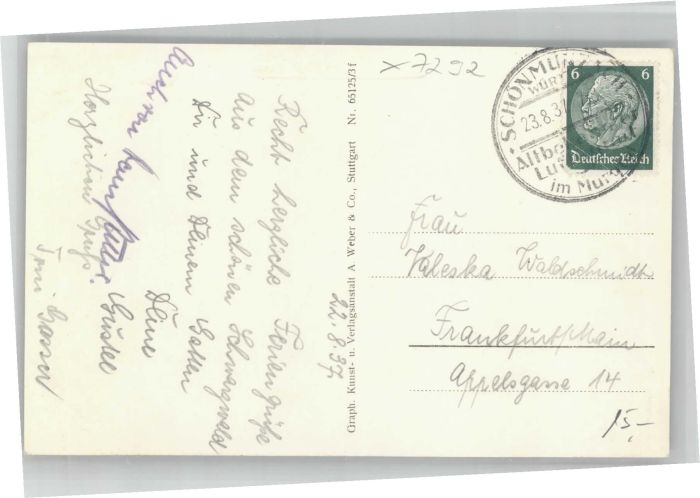 x 7292
Recht herzliche Feriengrüße
aus dem schönen Schwarzwald
Dir und Deinem Gatten
Deine
Gustel
Herzlichen Gruß.
Toni Gasser
22.8.37
Graph. Kunst- u. Verlagsanstalt A. Weber & Co., Stuttgart Nr. 65125/3f
SCHÖNMÜN
WÜRT
23.8.37
Altbe
Lu
im Murg
6 6
Deutsches Reich
Frau
Valeska Waldschmidt
Frankfurt/Main
Appelsgasse 14
15,-